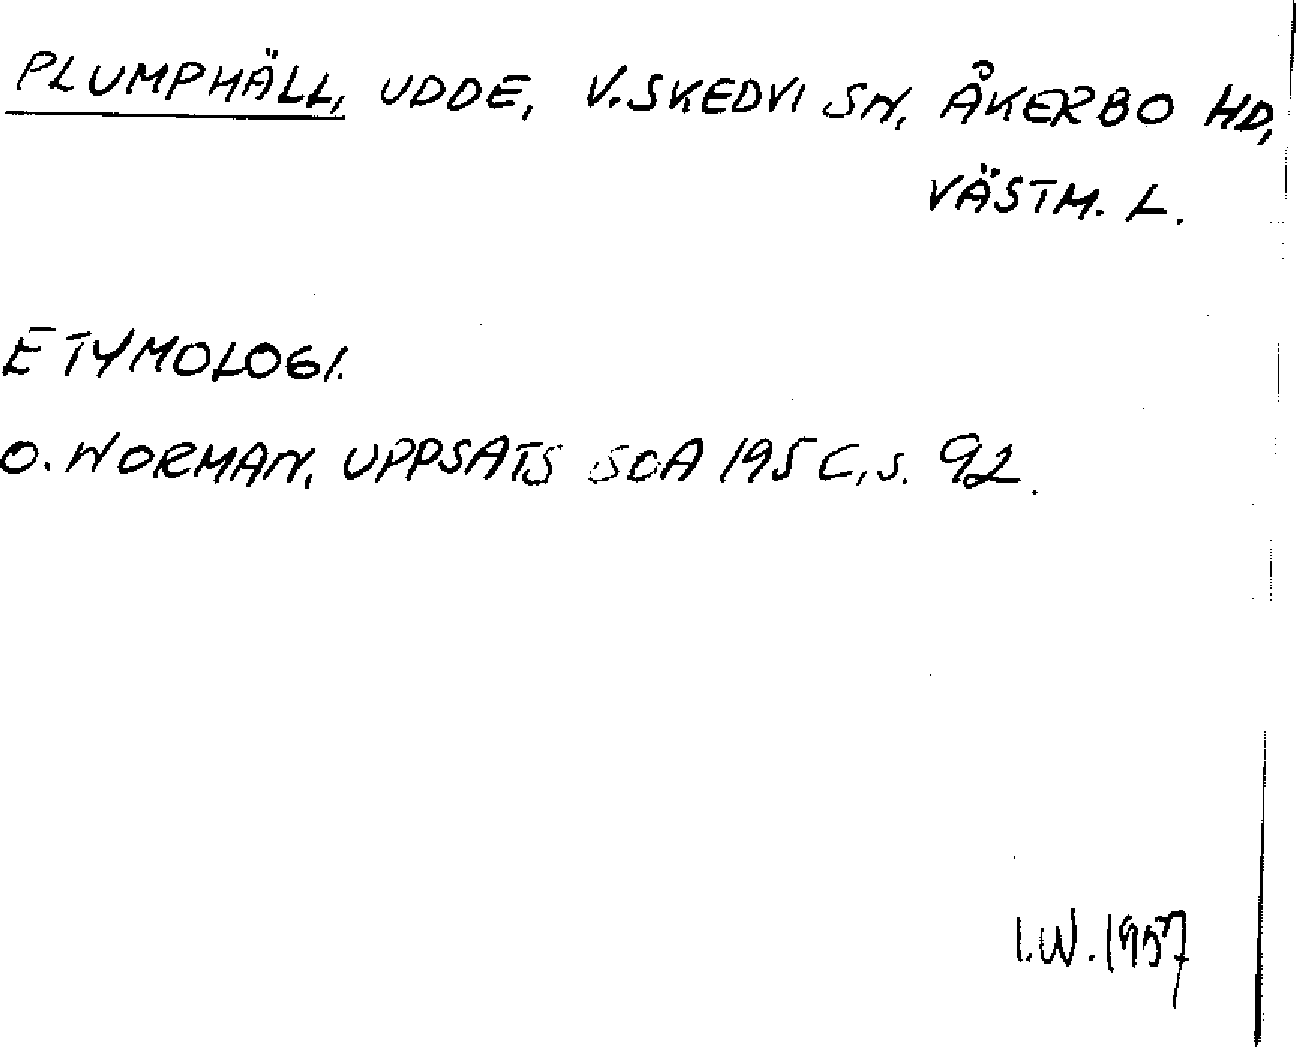 PLUMPHÄLL, UDDE, V. SKEDVI SN, ÅKERBO HD,
VÄSTM. L.
ETYMOLOGI.
O. NORMAN, UPPSATS SOA 1956, s. 92.
I.W. 1957